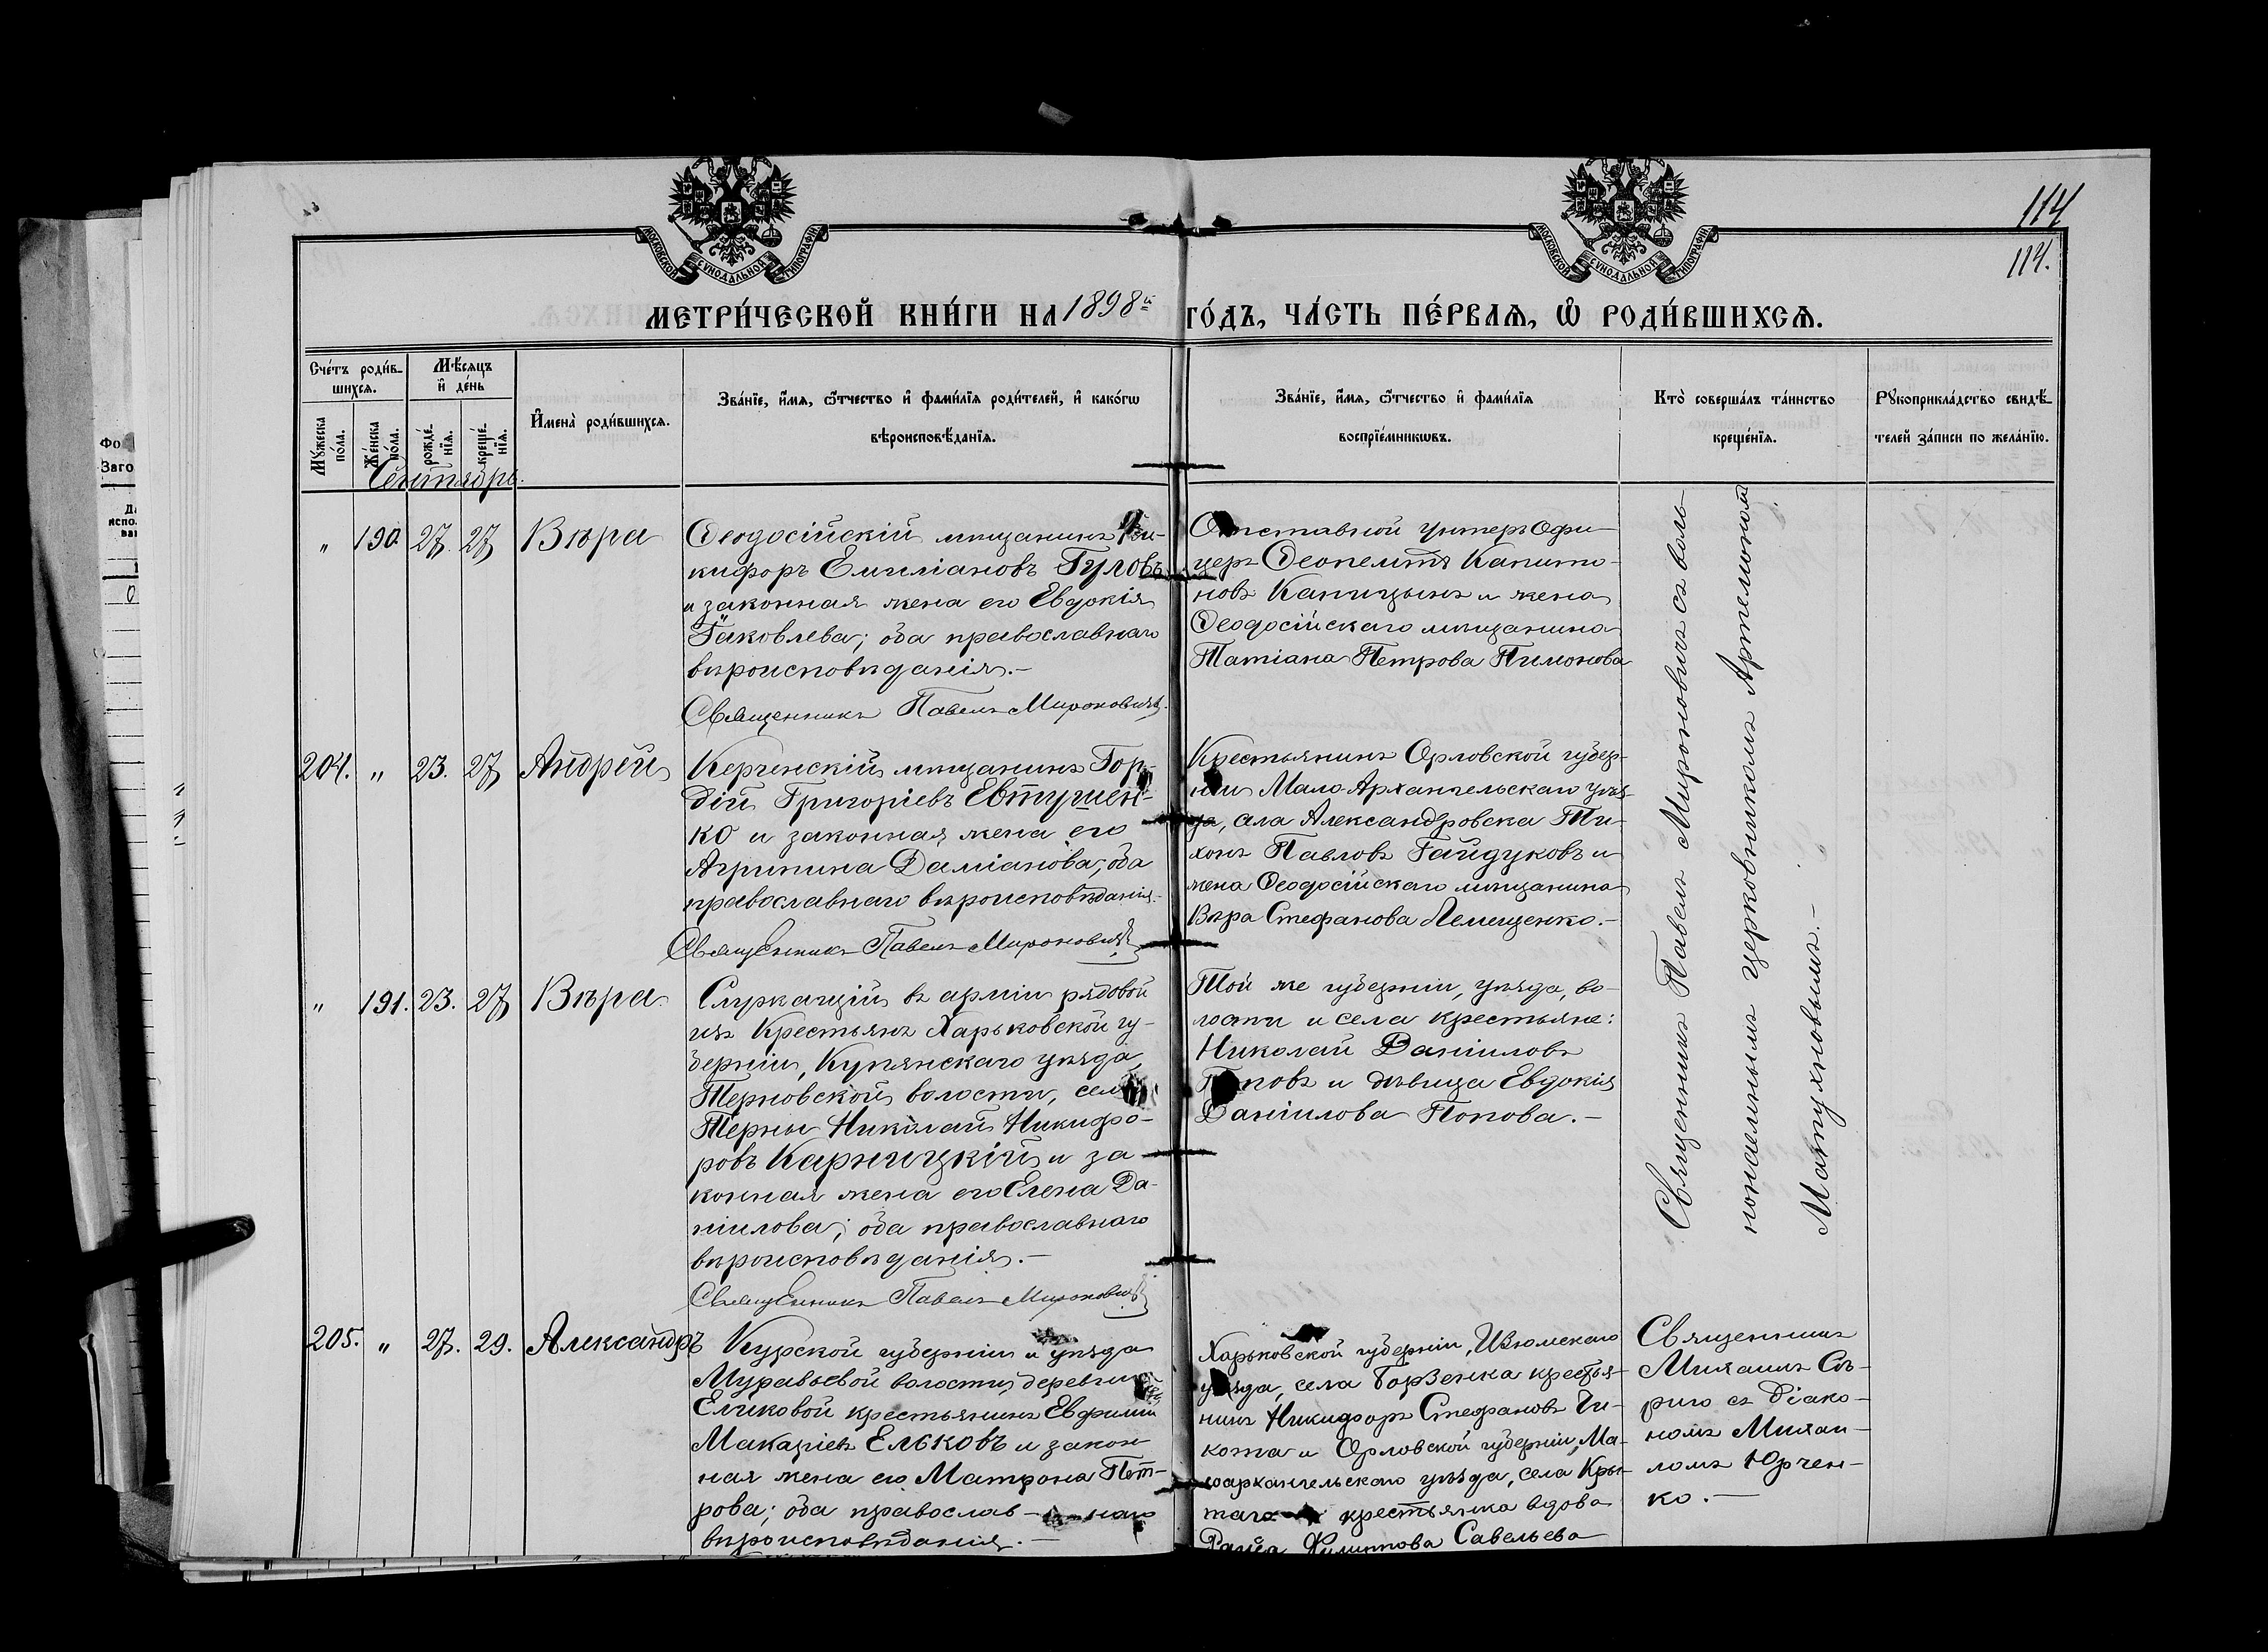 114
114.
МОСКОВСКОЙ СѴНОДАЛЬНОЙ ТИПОГРАФІИ
МОСКОВСКОЙ СѴНОДАЛЬНОЙ ТИПОГРАФІИ
МЕТРИ́ЧЕСКОЙ КНИ́ГИ НА 1898й ГО́ДЪ, ЧА́СТЬ ПЕ́РВАѦ, Ѡ҆ РОДИ́ВШИХСѦ.
Сче́тъ роди́в-
шихсѧ.
Мꙋ́жеска по́ла.
Же́нска по́ла.
Мѣ́сѧцъ
и҆ де́нь
рожде́-нїѧ.
креще́-нїѧ.
И҆мена̀ роди́вшихсѧ.
Зва́нїе, и҆́мѧ, ѻ҆́тчество и҆ фами́лїѧ роди́телей, и҆ како́гѡ
вѣроисповѣ́данїѧ.
Зва́нїе, и҆́мѧ, ѻ҆́тчество и҆ фами́лїѧ
воспрїе́мникѡвъ.
Кто̀ соверша́лъ та́инство
креще́нїѧ.
Рꙋкоприкла́дство свидѣ́-
телей за́писи по жела́нїю.
Сентябрь.
" 190. 27. 27 Вѣра
Ѳеодосійскій мѣщанинъ Ни-
кифоръ Емиліановъ Гуловъ
и законная жена его Евдокія
Іаковлева; оба православнаго
вѣроисповѣданія.-
Священникъ Павелъ Мироновичъ.
Отставной унтеръ Офи-
церъ Ѳеопемтъ Капито-
новъ Капицынъ и жена
Ѳеодосійскаго мѣщанина
Татіана Петрова Пимонова
204. " 23. 27 Андрей
Керченскій мѣщанинъ Гор-
дій Григоріевъ Евтушен-
ко и законная жена его
Агрипина Даміанова; оба
православнаго вѣроисповѣданія.-
Священникъ Павелъ Мироновичъ
Крестьянинъ Орловской губер-
ніи Мало-Архангельскаго уѣз-
да, села Александровска Ти-
хонъ Павловъ Гайдуковъ и
жена Ѳеодосійскаго мѣщанина
Вѣра Стефанова Лемещенко.-
" 191. 23. 27 Вѣра.
Служащій въ арміи рядовой
изъ Крестьянъ Харьковской гу-
берніи, Купянскаго уѣзда,
Терновской волости, села
Терны Николай Никифо-
ровъ Карницкій и за-
конная жена его Елена Да-
ніилова; оба православнаго
вѣроисповѣданія.-
Священникъ Павелъ Мироновичъ
Той же губерніи, уѣзда, во-
лости и села крестьяне:
Николай Даніиловъ
Поповъ и дѣвица Евдокія
Даніилова Попова.-
Священникъ Павелъ Мироновичъ съ воль-
нонаемнымъ церковникомъ Артемономъ
Матухновымъ.-
205. " 27. 29. Александръ
Курской губерніи и уѣзда
Муравьевой волости, деревни
Еликовой крестьянинъ Евфимій
Макаріевъ Ельковъ и закон-
ная жена его Матрона Пет-
рова; оба православ-наго
вѣроисповѣданія.-
Харьковской губерніи, Изюмскаго
уѣзда, села Борзенка крестья-
нинъ Никифоръ Стефановъ Чи-
кота и Орловской губерніи, Ма-
лоархангельскаго уѣзда, села Кры-
таго крестьянка вдова
Раиса Филиппова Савельева
Священникъ
Михаилъ Сѣ-
рио съ Діако-
номъ Михаи-
ломъ Юрчен-
ко.-